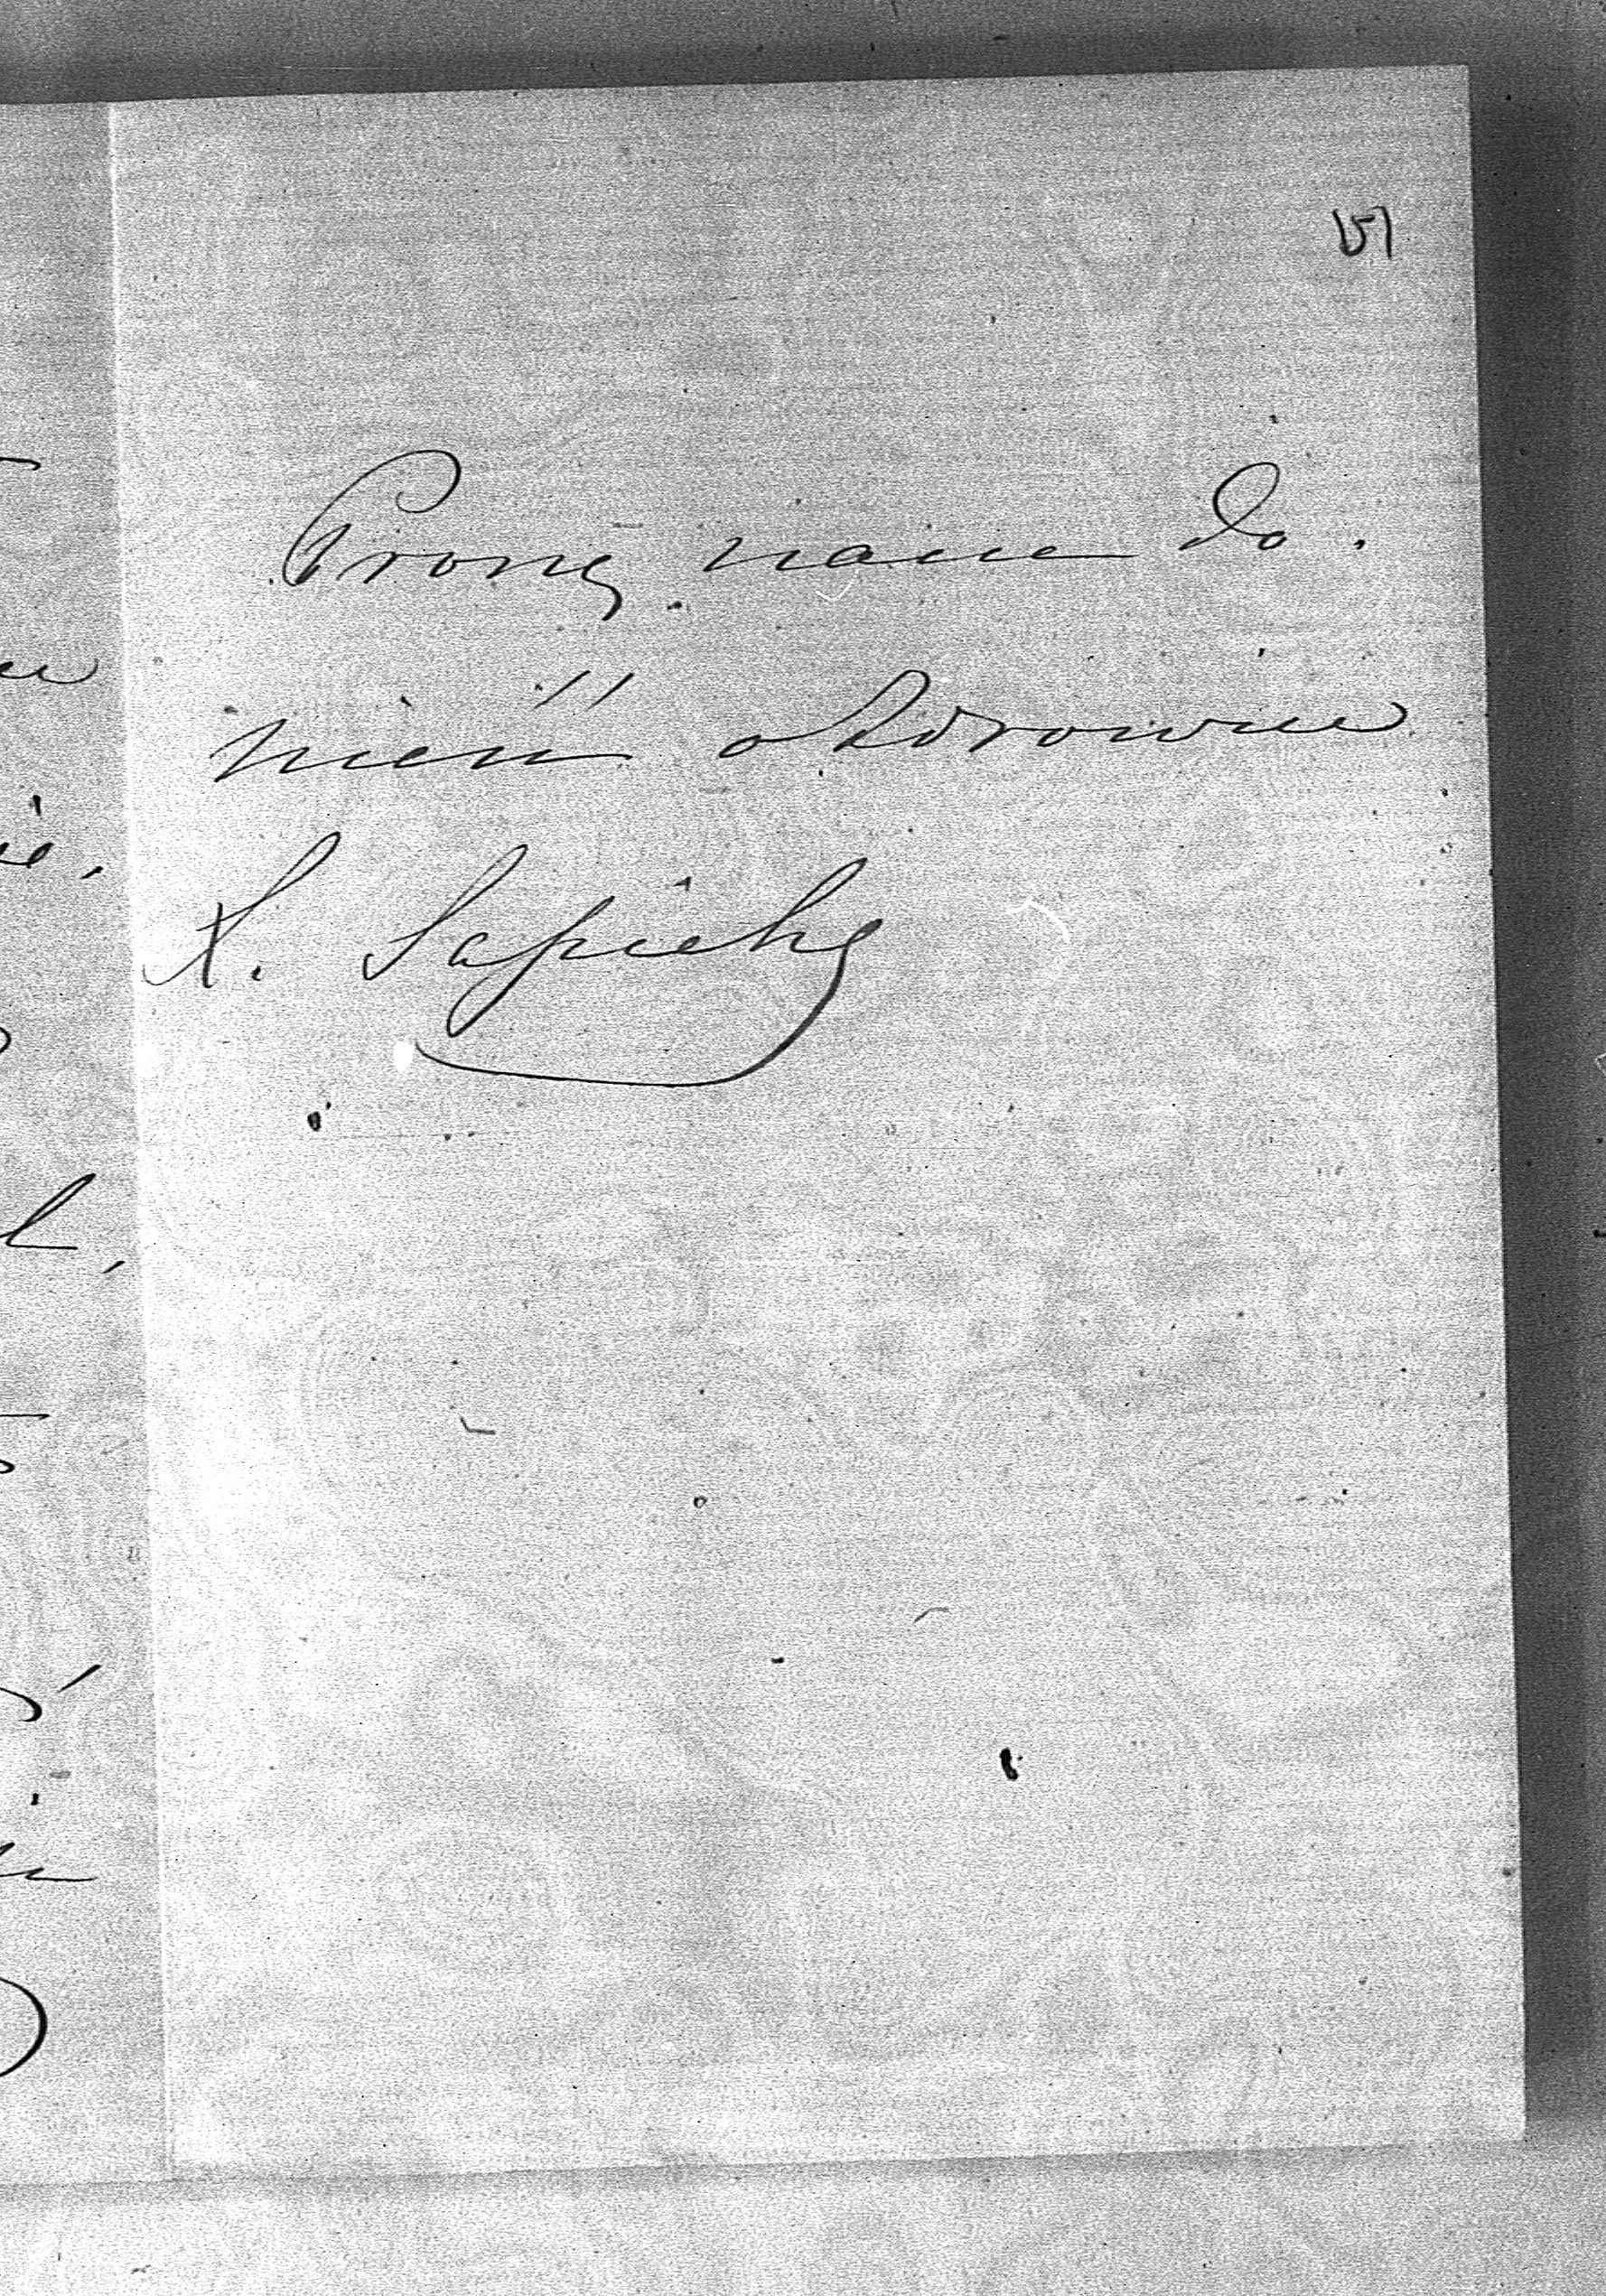 151
Proszę nam do.
nieść o zdrowiu
X. Sapiehy